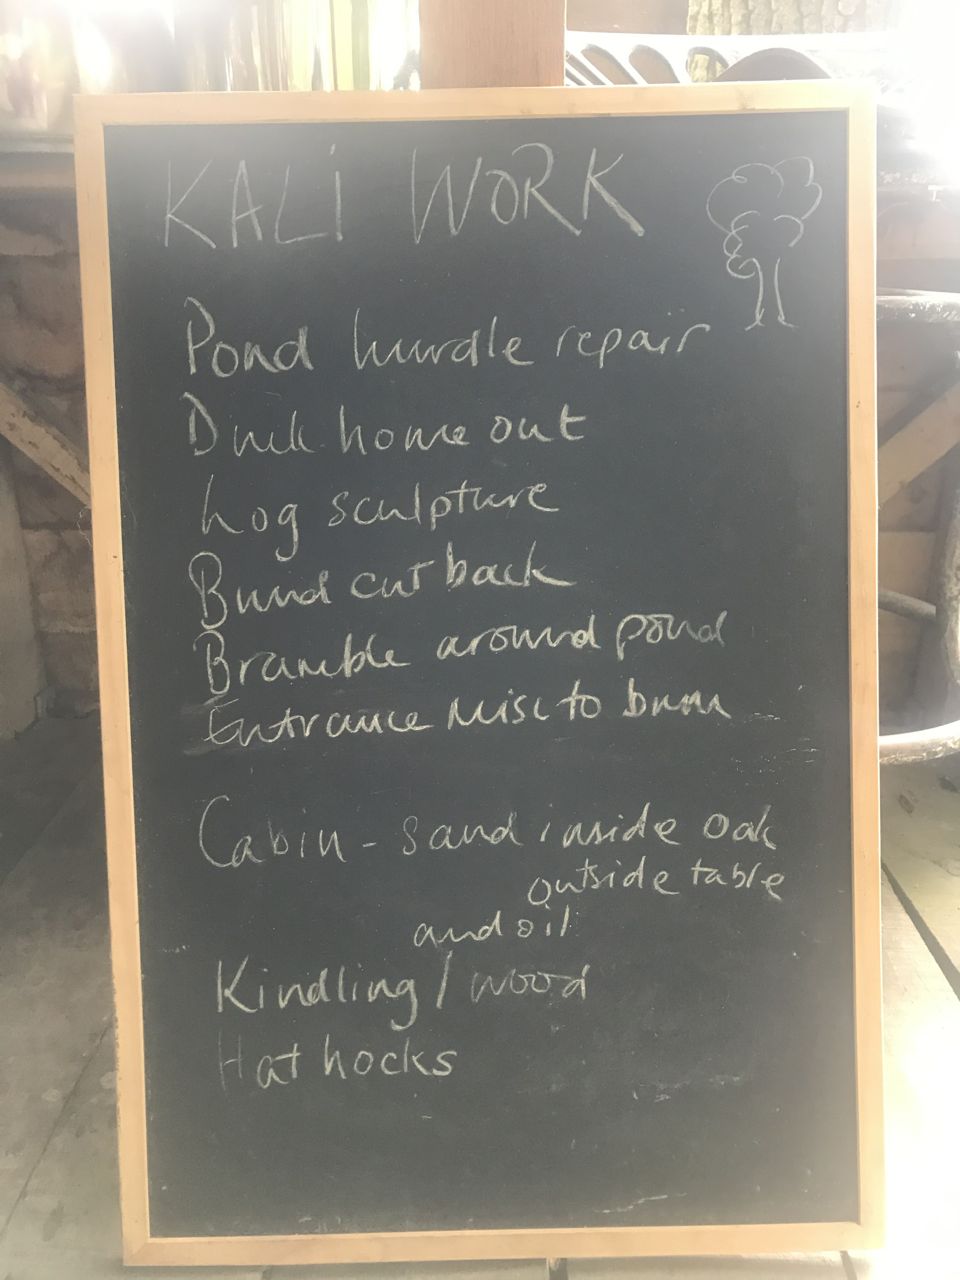 KALI WORK
Pond hurdle repair
Duck home out
Log sculpture
Bund cut back
Bramble around pond
Entrance misc to burn
Cabin - sand inside oak
outside table
and oil
Kindling / wood
Hat hocks